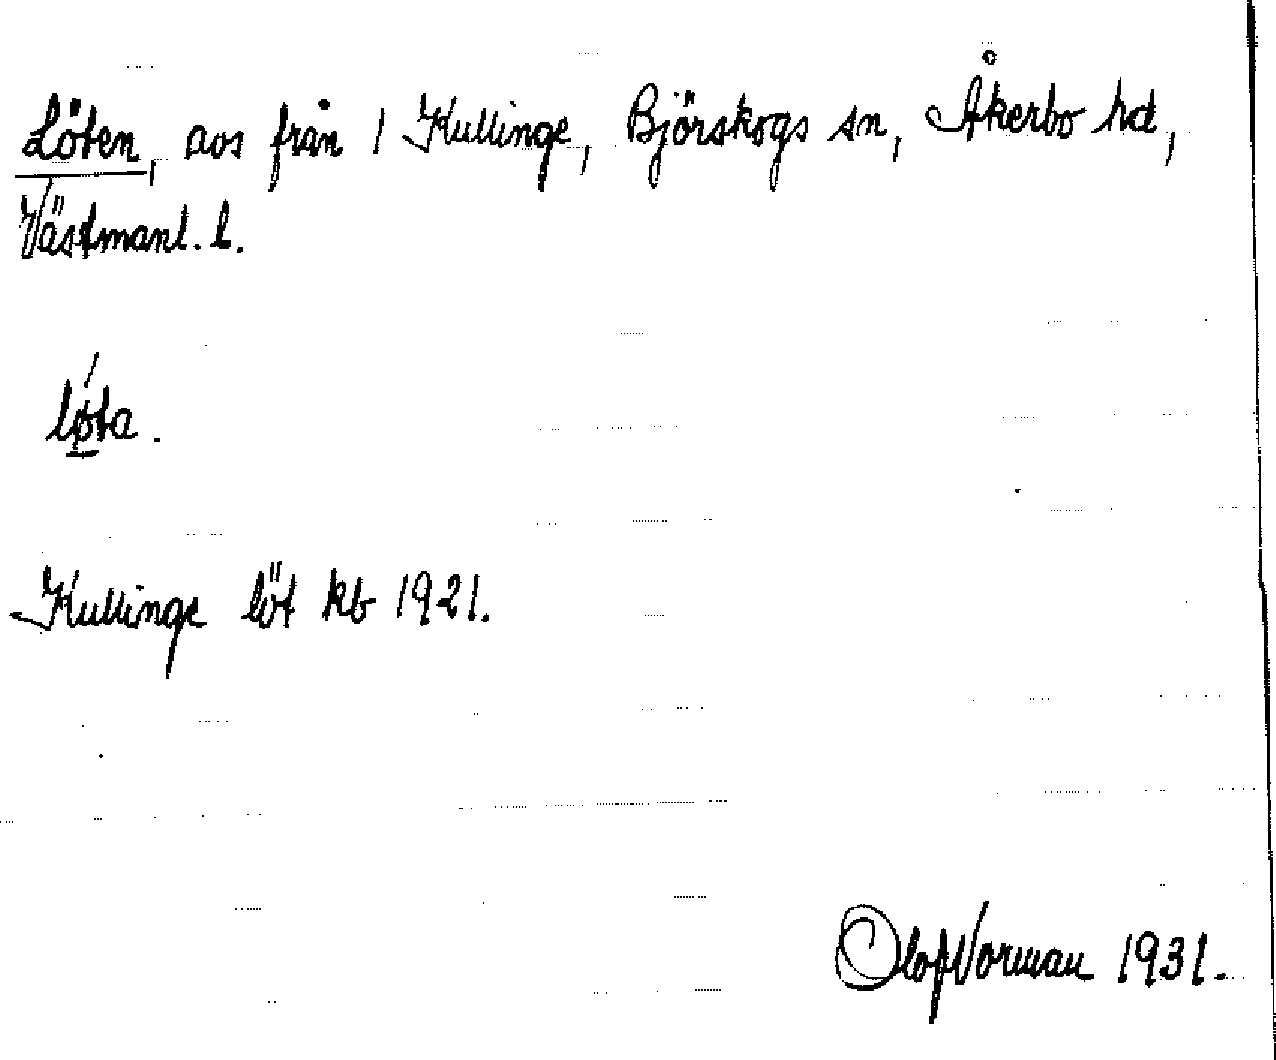 Löten, aos från 1 Kullinge, Björskogs sn, Åkerbo hd,
Västmanl. l.
lǿta.
Kullinge löt kb 1921.
Olof Vorman 1931.